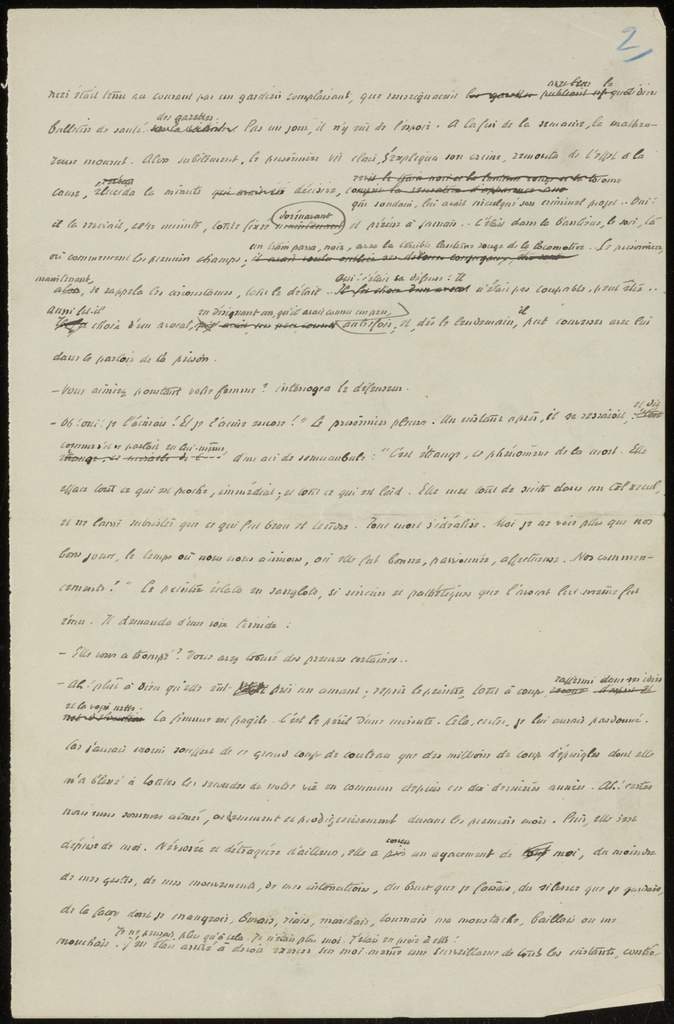 2
était tenu au courant par un gardien complaisant, que renseignait avec bras le quotidien
bulletin de santé des gazettes. Pas un jour, il n'y eut de l'espoir. A la fin de la semaine, la malheu-
reuse mourut. Alors subitement, le prisonnier vit clair, s'expliqua son crime, remonta de l'effet à la
cause, la minute décisive,
qui soudain, lui avait inculqué son criminel projet... Oui!
il la revivait, cette minute, toute fixée dorénavant et précise à jamais... C'était dans la banlieue, le soir, là
où commencent les premiers champs; un train passa, noir, avec la terrible lanterne rouge de la locomotive. Le prisonnier,
maintenant, se rappela les circonstances, tout le détail... Oui! c'était sa défense: Il n'était pas coupable, peut-être...
Aussi fit-il choix d'un avocat, en désignant un, qu'il avait connu un peu, autrefois, et, dès le lendemain, il put converser avec lui
dans le parloir de la prison.
— Vous aimiez pourtant votre femme? interrogea le défenseur.
— Oh! oui! je l'aimais! Et je l'aime encore!" Le prisonnier pleura. Un instant après, il se ressaisit, et dit
comme s'il se parlait à lui-même d'un air de somnambule: "C'est étrange, ce phénomène de la mort. Elle
efface tout ce qui est proche, immédiat; et tout ce qui est laid. Elle met tout de suite dans un tel recul,
et ne laisse subsister que ce qui fut beau et tendre. Tout mort s'idéalise. Moi je ne vois plus que nos
bons jours, le temps où nous nous aimions, où elle fut bonne, passionnée, affectueuse. Nos commen-
cements!" Le peintre éclata en sanglots, si sincères et pathétiques que l'avocat lui-même fut
ému. Il demanda d'une voix timide:
— Elle vous a trompé? Vous avez trouvé des preuves certaines...
— Ah! plût à Dieu qu'elle eût pris un amant, reprit le peintre, tout à coup raffermi dans ses idées
et la voix nette. La femme est fragile. C'est le péril d'une minute. Cela, certes, je lui aurais pardonné.
Car j'aurais moins souffert de ce grand coup de couteau que des millions de coups d'épingles dont elle
m'a blessé à toutes les secondes de notre vie en commun depuis ces dix dernières années. Ah! certes
nous nous sommes aimés, ardemment et prodigieusement durant les premiers mois. Puis, elle s'est
déprise de moi. Névrosée et détraquée d'ailleurs, elle a conçu un agacement de moi, du moindre
de mes gestes, de mes mouvements, de mes intonations, du bruit que je faisais, du silence que je gardais,
de la façon dont je mangeais, buvais, riais, marchais, tournais ma moustache, baillais ou me
mouchais. Je ne pensais plus qu'à cela. Je n'étais plus moi. J'étais en proie à elle!
J'en étais arrivé à devoir exercer sur moi-même une surveillance de tous les instants,